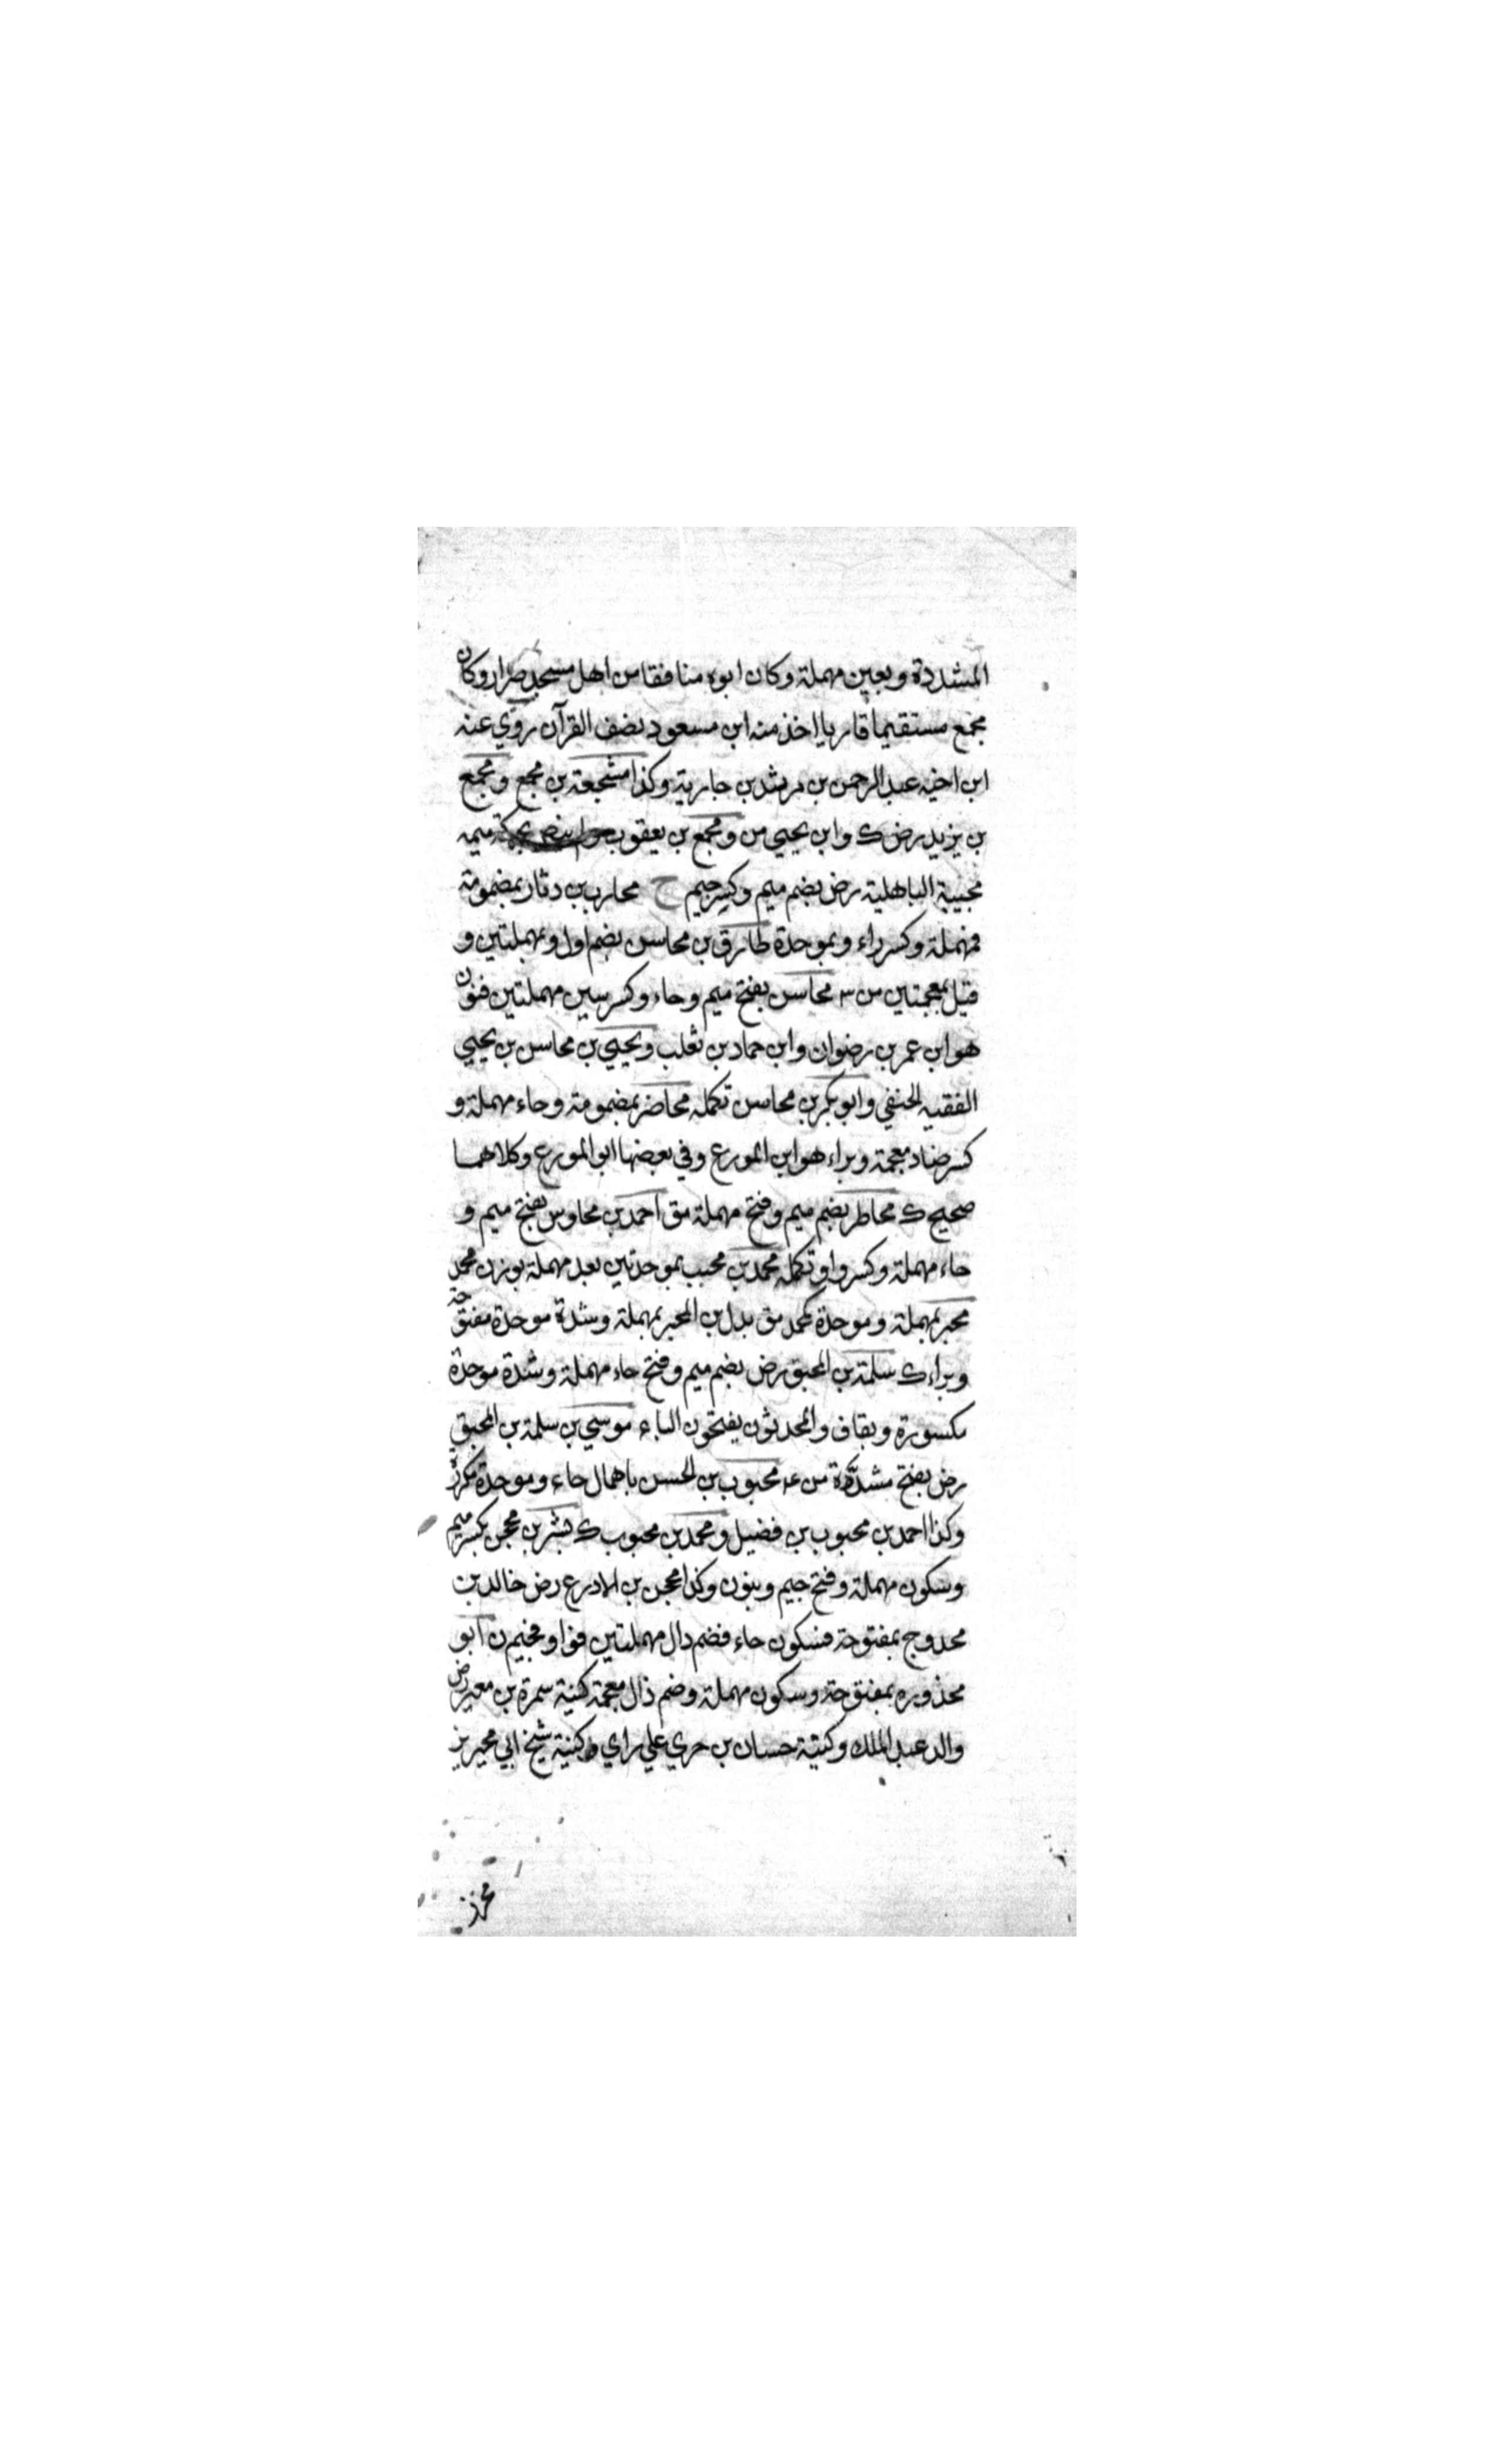 المشددة وبعين مهملة وكان ابوه منافقا من اهل مسجد ضرار وكان
مجمع مستقيما قاريا اخذ منه ابن مسعود نصف القرآن روي عنه
ابن اخيه عبد الرحمن بن مرشد بن جارية وكذا مشجعة بن مجمع ومجمع
بن يزيد رض ك وابن يحيي من ومجمع بن يعقوب ميمه
مجيبة الباهلية رض بضم ميم وكسر جيم ح محارب بن دثار بمضمومة
فمهملة وكسر راء وبموحدة طارق بن محاسن بضم اول وبمهملتين و
قيل بمعجمتين من ٣ محاسن بفتح ميم وحاء وكسر سين مهملتين فنون
هو ابن عمر بن رضوان وابن حماد بن ثعلب ويحيي بن محاسن بن يحيي
الفقيه الحنفي وابو بكر بن محاسن تكمله محاضر بمضمومة وحاء مهملة و
كسر ضاد معجمة وبراء هو ابن المورع وفي بعضها ابو المورع وكلاهما
صحيح ك محاطر بضم ميم وفتح مهملة مق احمد بن محاوس بفتح ميم و
حاء مهملة وكسر واو تكمله محمد بن محبب بموحدتين بعد مهملة بوزن محمد
محبر بمهملة وموحدة كمحمد مق بدل بن المحبر بمهملة وشدة موحدة مفتوحة
وبراء ك سلمة بن المحبق رض بضم ميم وفتح حاء مهملة وشدة موحدة
مكسورة وبقاف والمحدثون يفتحون الباء موسي بن سلمة بن المحبق
رض بفتح مشددة من ٤ محبوب بن الحسن باهمال حاء وموحدة مكررة
وكذا احمد بن محبوب بن فضيل ومحمد بن محبوب ك بشر بن محجن بكسر ميم
وسكون مهملة وفتح جيم وبنون وكذا محجن بن الادرع رض خالد بن
محدوج بمفتوحة فسكون حاء فضم دال مهملتين فواو فجيم ن ابو
محذوره بمفتوحة وسكون مهملة وضم ذال معجمة كنية سمرة بن معير رض
والد عبد الملك وكنية حسان بن حري علي راي وكنية شيخ ابي محيريز